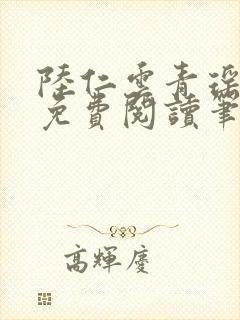 陸仁雲青瑤
免費閱讀筆
高輝慶